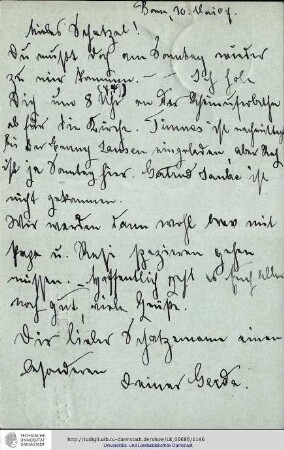 Bonn, 10. Mai 07.
liebes Schatzel!
Du mußt doch am Sonntag wieder
zu mir kommen. – – Ich hole
Dich um 8 Uhr an der Rheinuferbahn
ab für die Kirche. ist
bei der Fanny Jansen eingeladen aber
ist ja Sonntag hier. ist
nicht gekommen.
Wir werden dann wohl brav mit
Papa u. Resi spazieren gehen
müssen. – Hoffentlich geht es Euch allen
noch gut, viele Grüße.
Dir lieber Schatzemann einen
besonderen
Deiner Gerda.
TECHNISCHE
UNIVERSITÄT
DARMSTADT
Universitäts- und Landesbibliothek Darmstadt